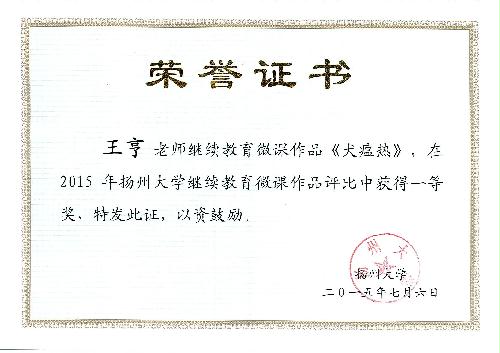 荣誉证书
王亨 老师继续教育微课作品《犬瘟热》，在
2015 年扬州大学继续教育微课作品评比中获得一等
奖、特发此证，以资鼓励。
扬州大学
二〇一五年七月六日